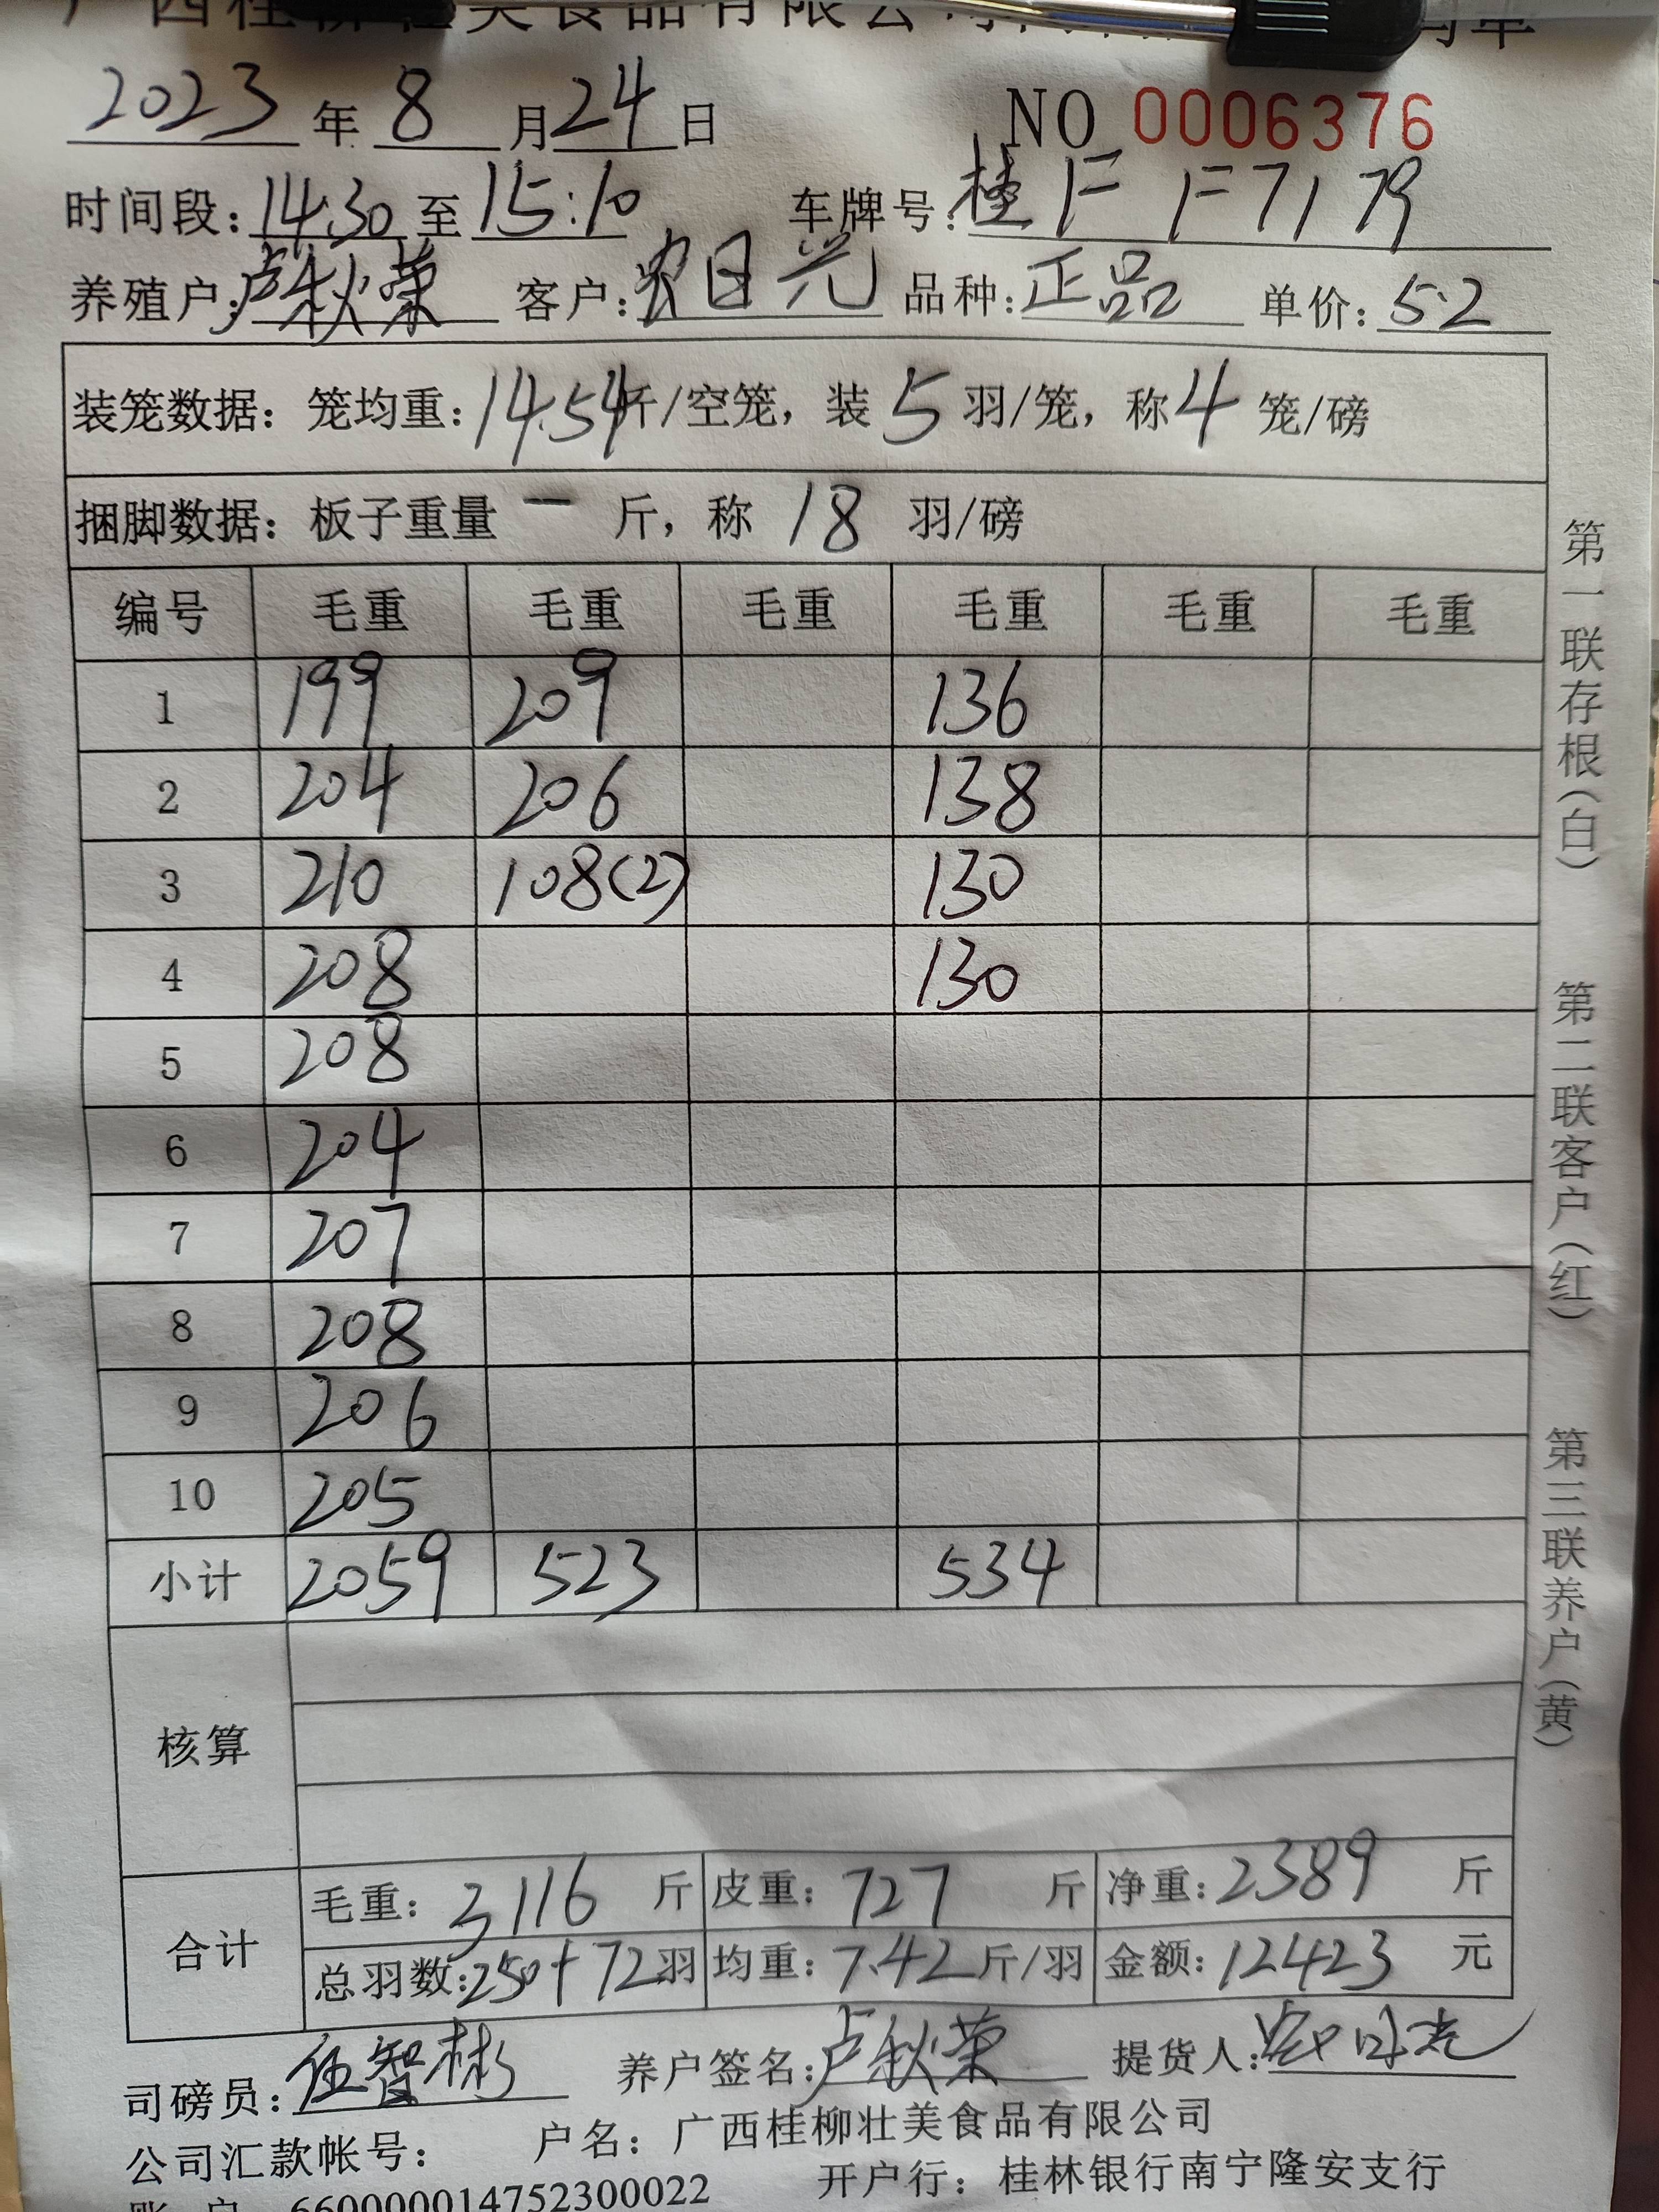 2023年8月24日 NO 0006376
时间段:14:30至15:10 车牌号:桂F F7179
养殖户:卢秋荣 客户:农日光 品种:正品 单价:5.2
装笼数据:笼均重:14.54斤/空笼,装5羽/笼,称4笼/磅
捆脚数据:板子重量 — 斤,称 18 羽/磅
编号 毛重 毛重 毛重 毛重 毛重 毛重
1 199 209 136
2 204 206 138
3 210 108(2) 130
4 208 130
5 208
6 204
7 207
8 208
9 206
10 205
小计 2059 523 534
核算
合计
毛重:3116 斤 皮重:727 斤 净重:2389 斤
总羽数:250+72羽 均重:7.42斤/羽 金额:12423 元
司磅员:伍智彬 养户签名:卢秋荣 提货人:农日光
公司汇款帐号: 户名:广西桂柳壮美食品有限公司
660000014752300022 开户行:桂林银行南宁隆安支行
第一联存根(白) 第二联客户(红) 第三联养户(黄)